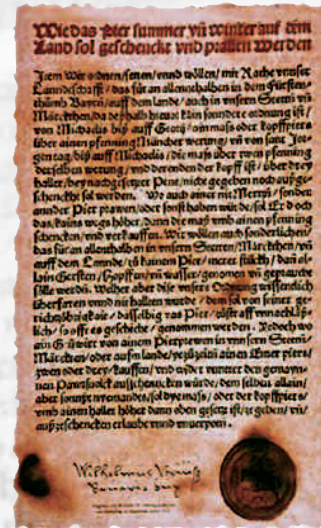 Wie das Pier summer vñ winter auf dem
Land sol geschenckt vnd prauen werden
Item Wir ordnen/setzen/vnnd wöllen/mit Rathe vnnser
Lanndtschafft/das für an allennthalben in dem Fürsten-
thumb Bayrn/auff dem lande/auch in vnsern Stettñ vñ
Märckthen/da deßhalb hieuor kain sonndere ordnung ist/
von Michaelis biß auff Georij/ain mass oder kopffpiers
über ainen pfenning Müncher werung/vñ von sant Jor-
gen tag/biß auff Michaelis/die mass über zwen pfenning
derselben werung/vnd derenden der kopff ist/über drey
haller/bey nachgesetzter Pene/nicht gegeben noch außge-
schenckht sol werden. Wo auch ainer nit Mertzñ/sonder
annder Pier prawen/oder sonst haben würde/sol Er doch
das/kains wegs höher/dann die mass vmb ainen pfenning
schencken/vnd verkauffen. Wir wöllen auch sonderlichen/
das für an allenthalben in vnsern Stetten/Märckthen/vñ
auff dem Lannde/zu kainem Pier/merer stückh/dañ al-
lain Gersten/Hopffen/vñ wasser/genomen vñ gepraucht
sölle werdñ. Welher aber dise vnsere Ordnung wissentlich
überfaren vnnd nit hallten wurde/dem sol von seiner ge-
richtzöbrigkait/dasselbig vas Pier/zustraff vnnachläß-
lich/so offt es geschicht/genommen werden. Yedoch wo
ain Gäuwirt von ainem Pierprewen in vnnsern Stettñ/
Märckten/oder aufm lande/yezuzeitñ ainen Emer piers/
zwen oder drey/kauffen/vnd wider vnntter den gemaynen
Pawrsuolck ausschencken würde/dem selben allain/
aber sonnst nyemandts/sol dye mass/oder der kopffpiers/
vmb ainen haller höher dann oben gesetzt ist/ze geben/vñ
außzeschencken erlaubt vnnd vnuerpotñ.